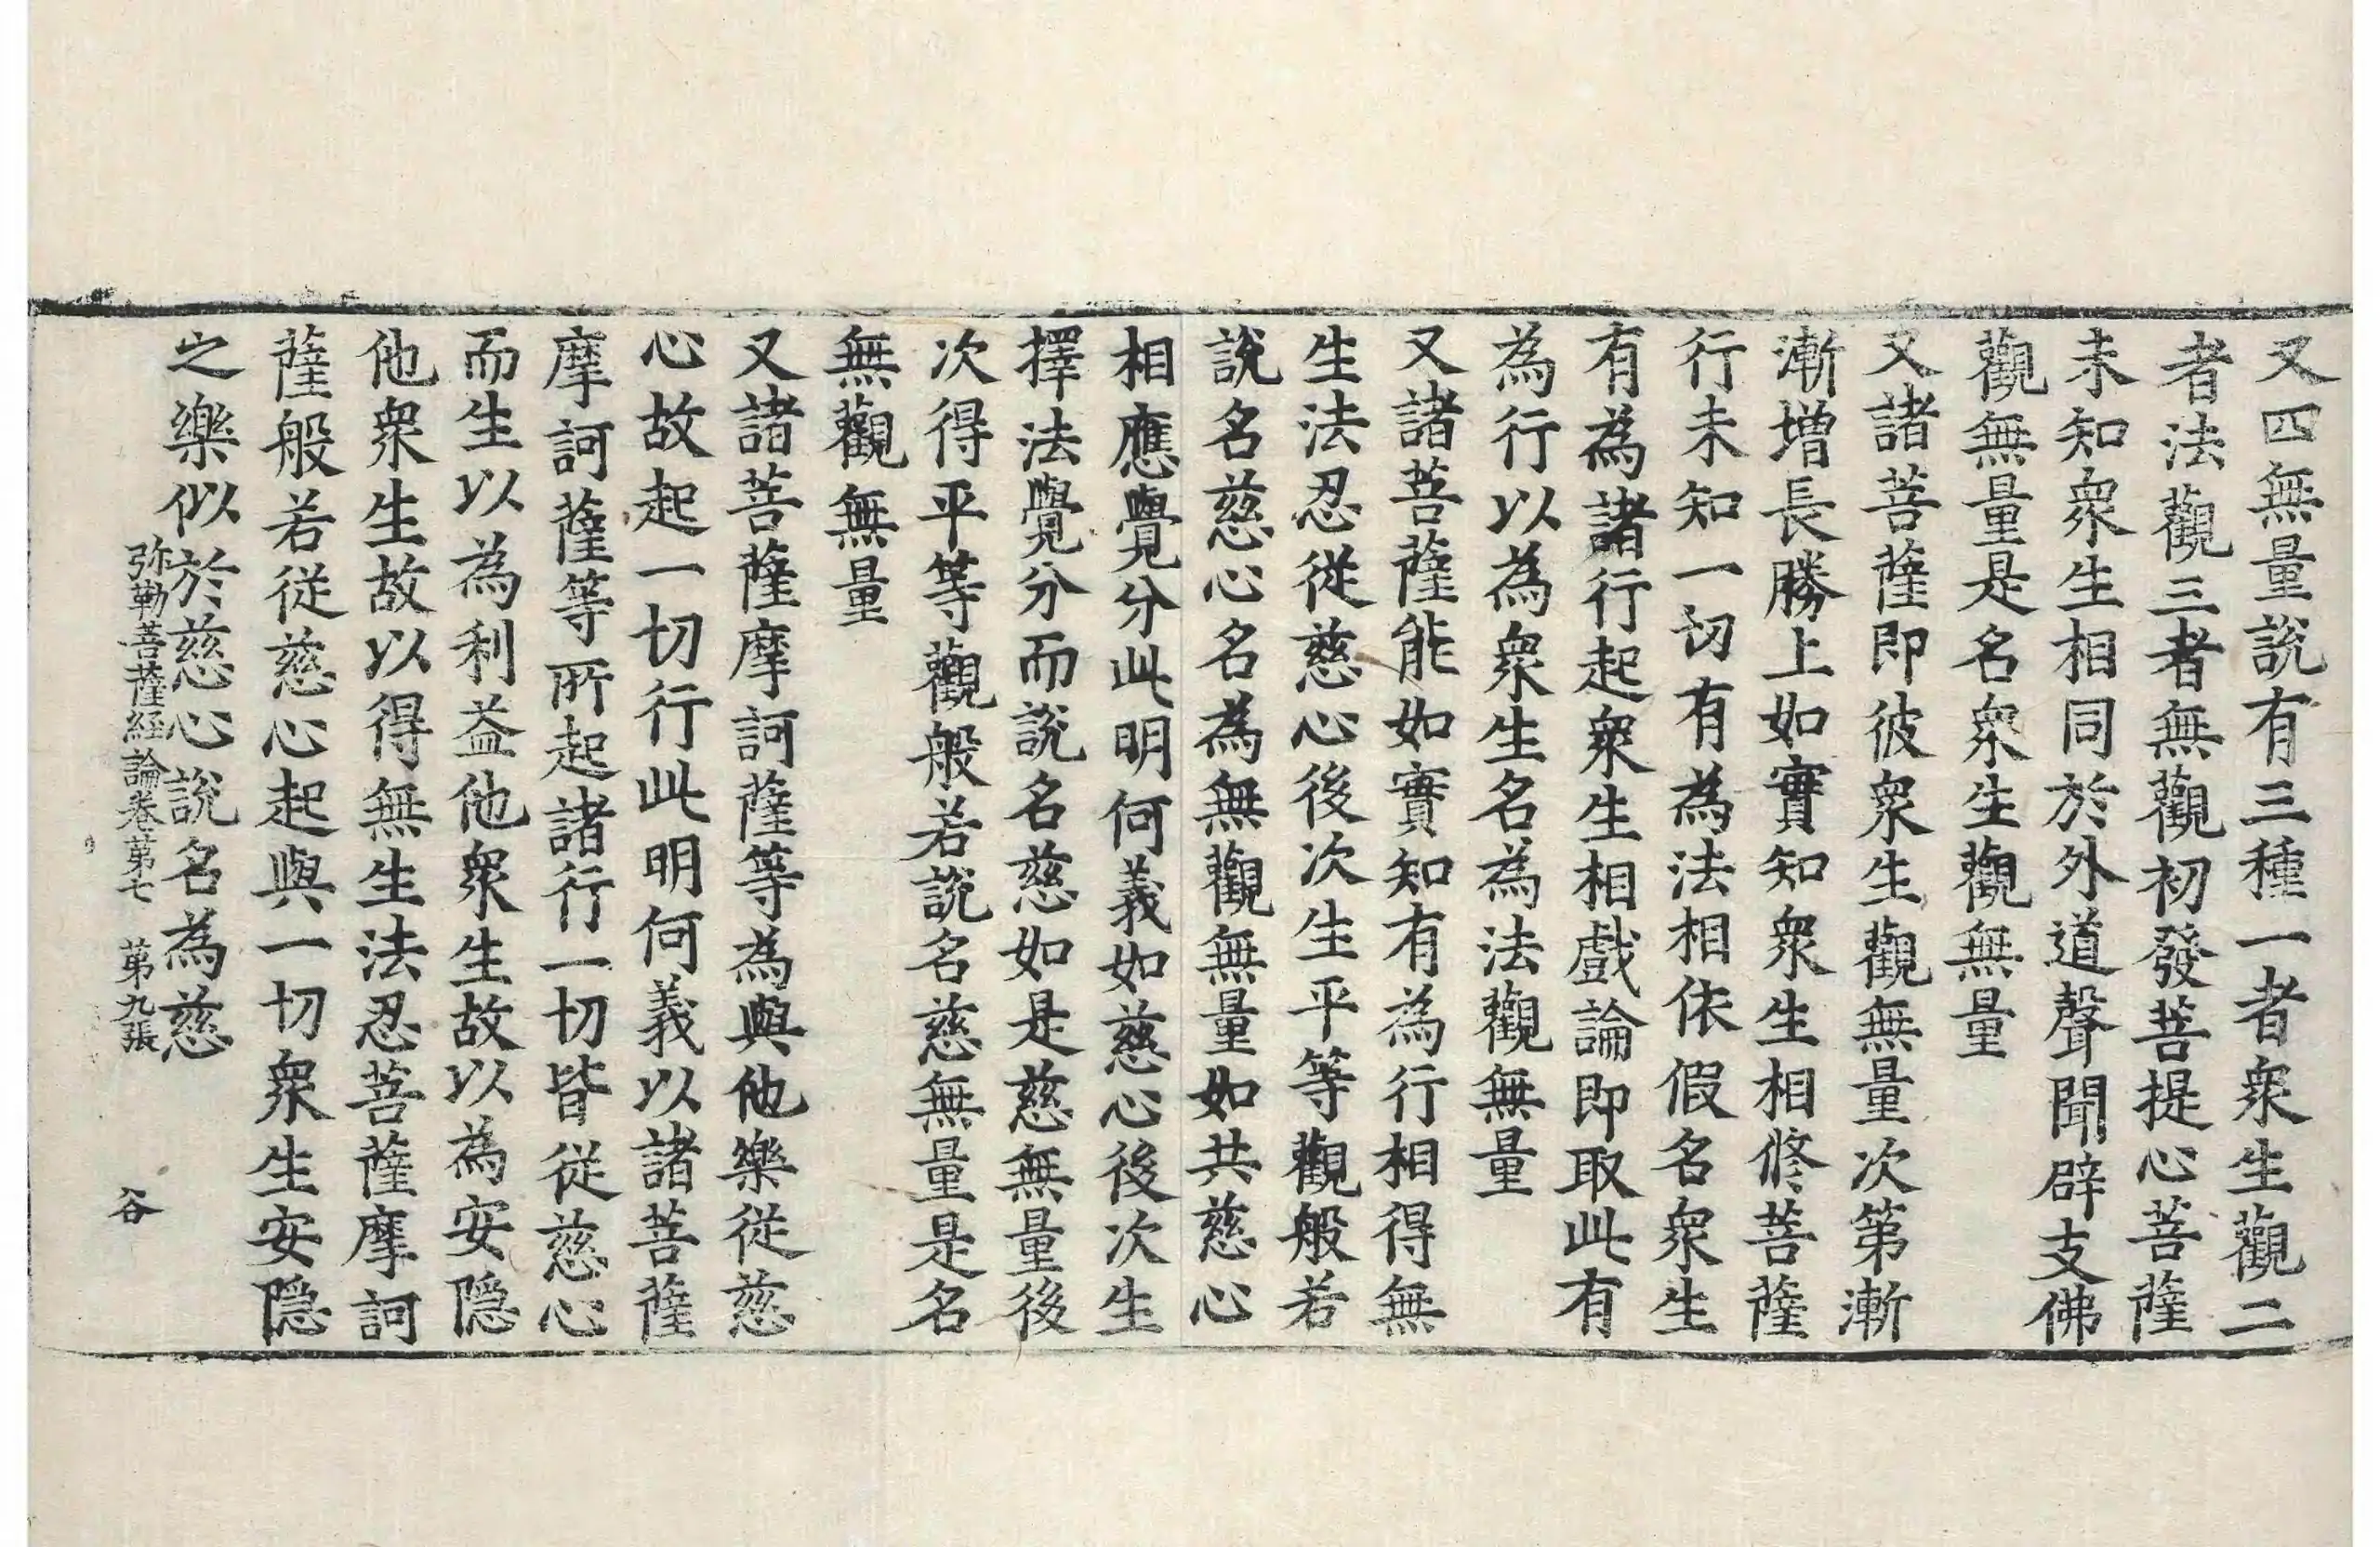 又四無量說有三種一者衆生觀二
者法觀三者無觀初發菩提心菩薩
未知衆生相同於外道聲聞辟支佛
觀無量是名衆生觀無量
又諸菩薩即彼衆生觀無量次第漸
漸增長勝上如實知衆生相修菩薩
行未知一切有為法相依假名衆生
有為諸行起衆生相戲論即取此有
為行以為衆生名為法觀無量
又諸菩薩能如實知有為行相得無
生法忍從慈心後次生平等觀般若
說名慈心名為無觀無量如共慈心
相應覺分此明何義如慈心後次生
擇法覺分而說名慈如是慈無量後
次得平等觀般若說名慈無量是名
無觀無量
又諸菩薩摩訶薩等為與他樂從慈
心故起一切行此明何義以諸菩薩
摩訶薩等所起諸行一切皆從慈心
而生以為利益他衆生故以為安隱
他衆生故以得無生法忍菩薩摩訶
薩般若從慈心起與一切衆生安隱
之樂似於慈心說名為慈
弥勒菩薩経論卷苐七 苐九張 谷